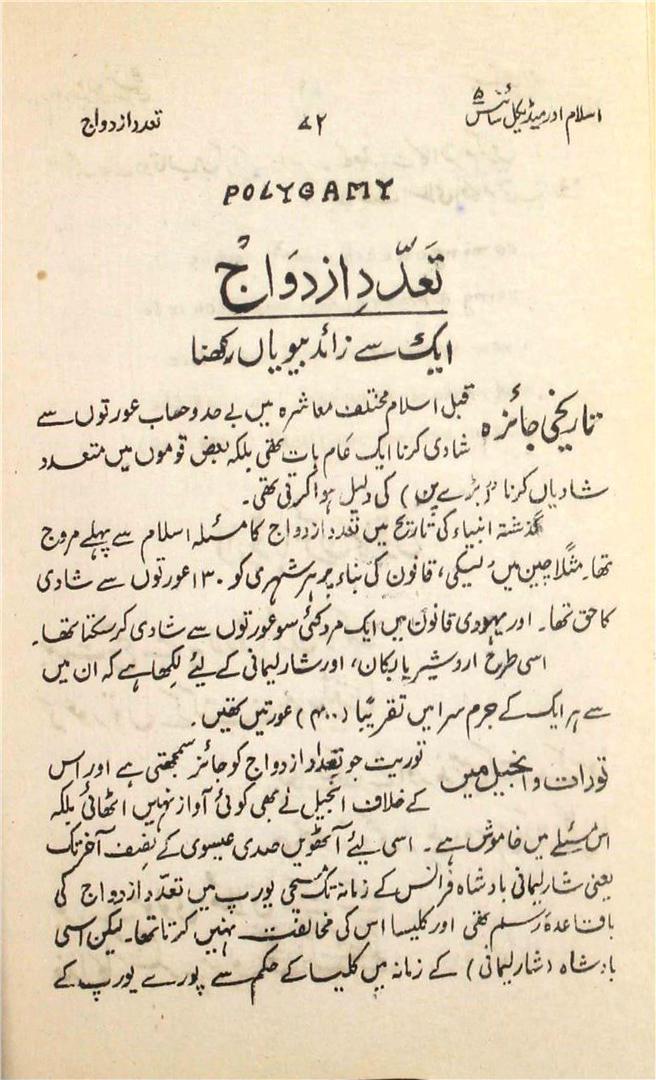 اسلام اور میڈیکل سائنس ۵
۸۲
تعدد ازدواج
POLYGAMY
تَعدّدِ ازدَواج
ایک سے زائد بیویاں رکھنا
تاریخی جائزہ قبل اسلام مختلف معاشرہ میں بے حد وحساب عورتوں سے
شادی کرنا ایک عام بات تھی بلکہ بعض قوموں میں متعدد
شادیاں کرنا (بڑے پن) کی دلیل ہوا کرتی تھی۔
گذشتہ انبیاء کی تاریخ میں تعدد ازدواج کا مسئلہ اسلام سے پہلے مروج
تھا۔ مثلاً چین میں، لیکی، قانون کی بناء پر ہر شہری کو ۱۳۰ عورتوں سے شادی
کا حق تھا۔ اور یہودی قانون میں ایک مرد کئی سو عورتوں سے شادی کر سکتا تھا۔
اسی طرح اردشیر بابکان، اور شارلیمانی کے لیئے لکھا ہے کہ ان میں
سے ہر ایک کے حرم سرا میں تقریبًا (۴۰۰) عورتیں تھیں۔
تورات و انجیل میں توریت جو تعداد ازدواج کو جائز سمجھتی ہے اور اس
کے خلاف انجیل نے بھی کوئی آواز نہیں اٹھائی بلکہ
اس مسئلے میں خاموش ہے۔ اسی لیئے آٹھویں صدی عیسوی کے نصف آخر تک
یعنی شارلیمانی بادشاہ فرانس کے زمانہ تک مسیحی یورپ میں تعدّد ازدواج کی
باقاعدہ رسم تھی اور کلیسا اس کی مخالفت نہیں کرتا تھا۔ لیکن اسی
بادشاہ (شارلیمانی) کے زمانہ میں کلیسا کے حکم سے پورے یورپ کے